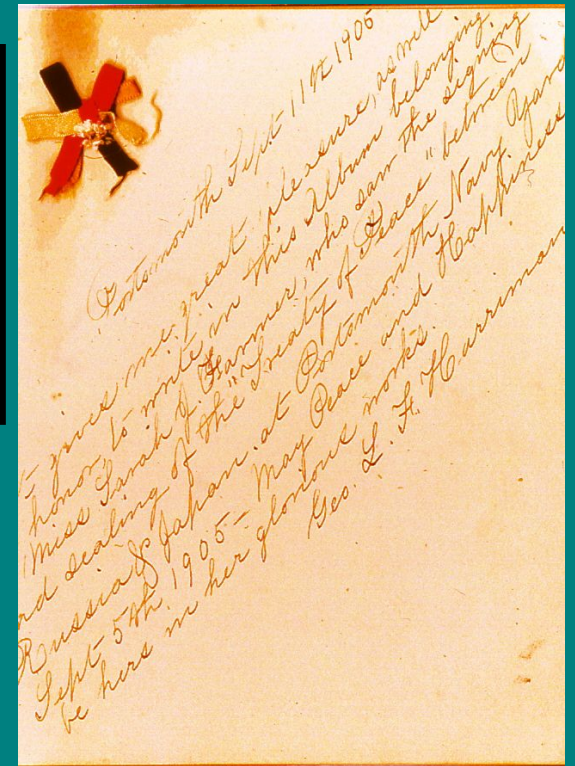 Portsmouth Sept. 11th 1905
t gives me great pleasure, as well
honor, to write in this Album belonging
Miss Sarah J. Farmer, who saw the signing
nd sealing of the "Treaty of Peace" between
Russia & Japan at Portsmouth Navy Yard
Sept 5th 1905 – May Peace and Happiness
be hers in her glorious works.
Geo. L. F. Harriman